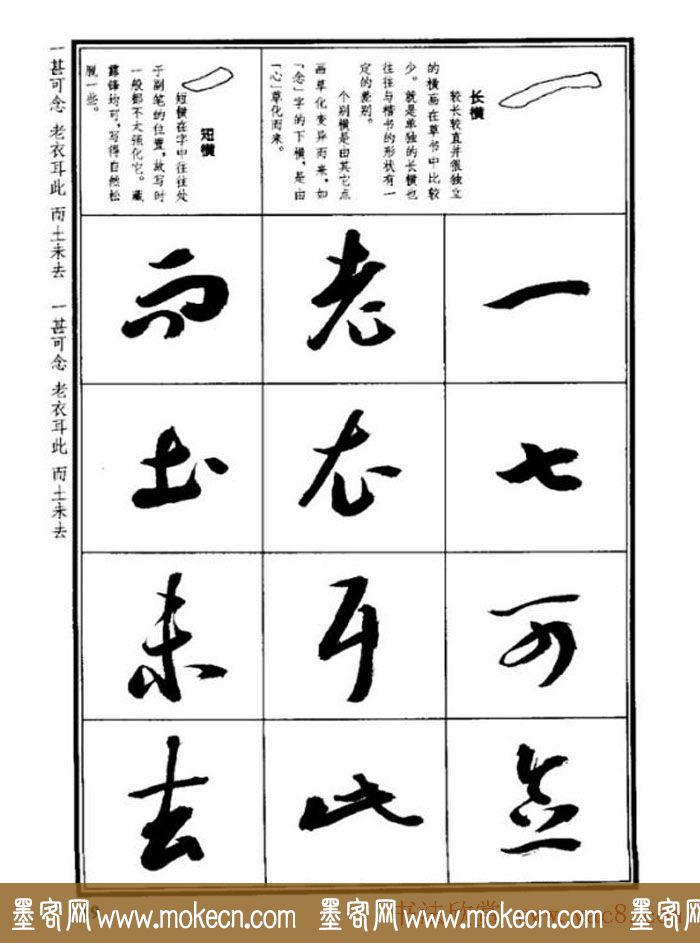 长横
较长较直并很独立
的横画在草书中比较
少。就是单独的长横也
往往与楷书的形状有一
定的差别。
个别横是由其它点
画草化变异而来，如
「念」字的下横，是由
「心」草化而来。
短横
短横在字中往往处
于副笔的位置，故写时
一般都不太强化它。藏
露锋均可，写得自然松
脱一些。
一甚可念
老衣耳此
而土未去
一甚可念 老衣耳此 而土未去 一甚可念 老衣耳此 而土未去
墨客网www.mokecn.com 墨客网www.mokecn.com
书法欣赏